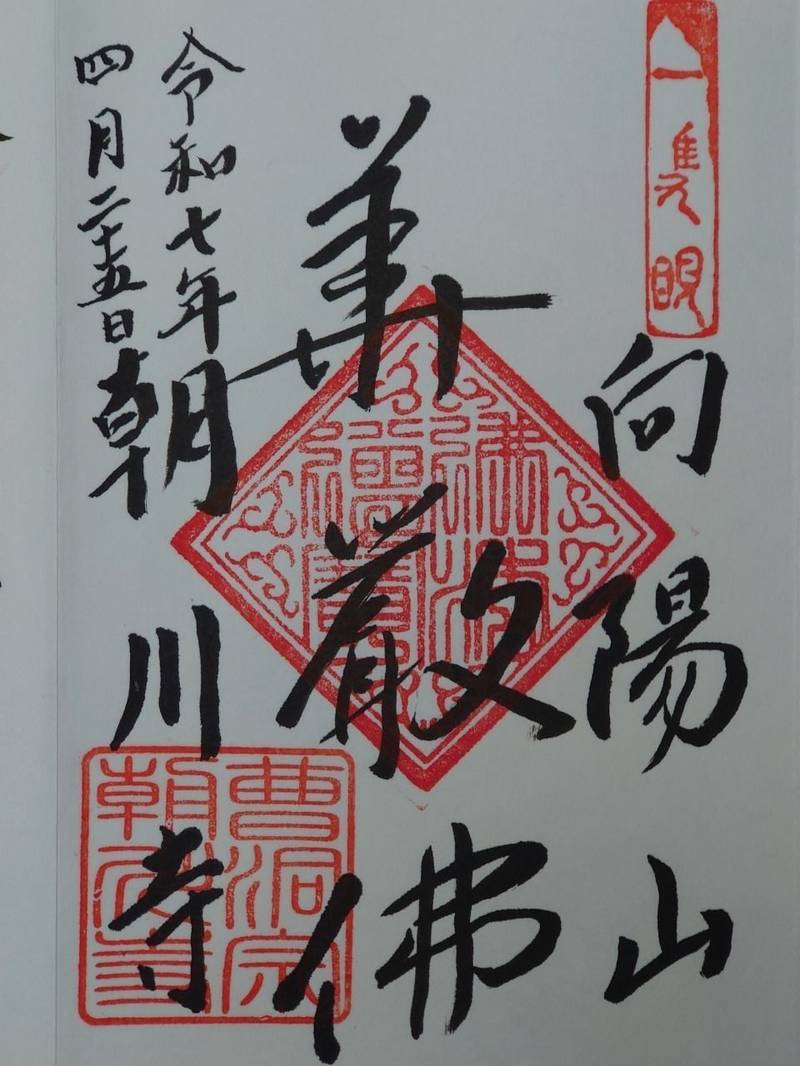 一隻眼
向陽山
華嚴佛
令和七年
四月二十五日
朝川寺
佛法
僧寶
曹洞宗
朝川寺